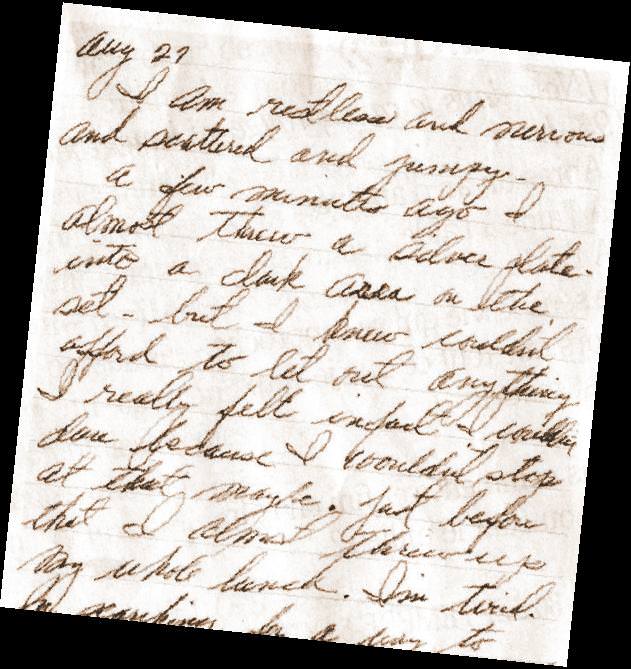 Aug 27
I am restless and nervous
and scattered and jumpy -
a few minutes ago I
almost threw a silver plate -
into a dark area on the
set - but I knew I couldn't
afford to let out anything
I really felt in fact I couldn't
dare because I wouldn't stop
at that maybe. Just before
that I almost threw up
my whole lunch. I'm tired.
searching for a way to